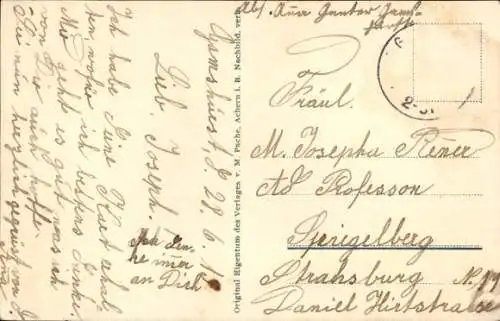 Gamshurst, d. 28. 6. 1
Lieb. Joseph.
Ich habe Deine Kart erhal-
ten, wofür ich bestens Danke.
Mir geht es gut was ich
von Dir auch hoffe.
Sei nun herzlich gegrüsst von D.
Ich Den-
ke immer
an Dich
Original Eigentum des Verlages v. M. Pache, Achern i. B. Nachbild. verb.
Abs.
Fräul.
M. Josepha Rener
Ad Professor
Spiegelberg
Strahsburg N. 19
Daniel Hirtstrasse